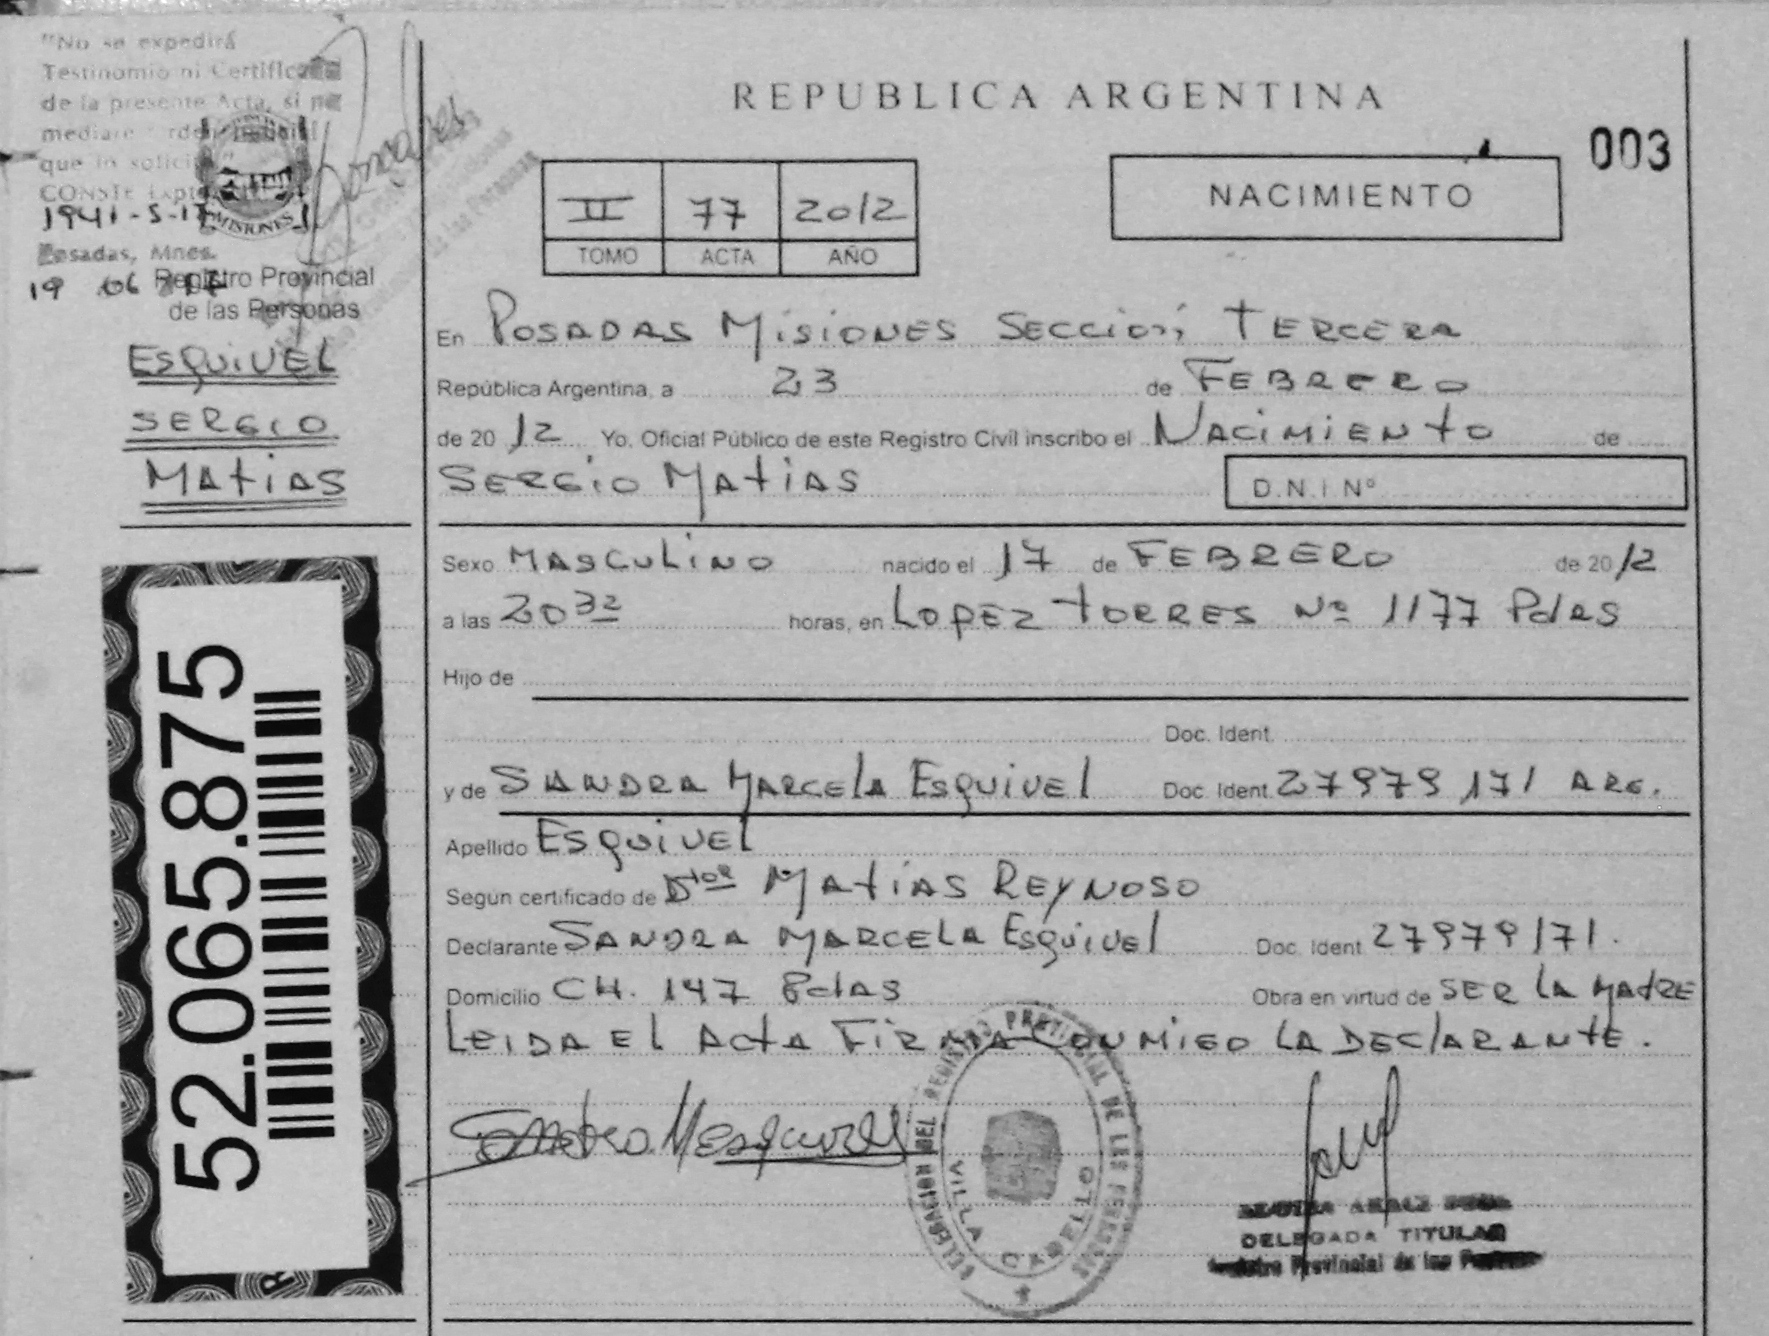 "No se expedirá
Testinomio ni Certific
de la presente Acta, si no
que lo solicite"
CONSTE Expte
1941-S-17
MISIONES
Posadas, Mnes.
19 06 17
Registro Provincial
de las Personas
ESQUIVEL
SERGIO
MATIAS
52.065.875
REPUBLICA ARGENTINA
003
NACIMIENTO
II 77 2012
TOMO ACTA AÑO
En POSADAS MISIONES SECCION TERCERA
República Argentina, a 23 de FEBRERO
de 20 12 Yo. Oficial Público de este Registro Civil inscribo el NACIMIENTO de
SERGIO MATIAS D.N.I Nº
Sexo MASCULINO nacido el 17 de FEBRERO de 20 12
a las 20 32 horas, en LOPEZ TORRES Nº 1177 Pdas
Hijo de
Doc. Ident.
y de SANDRA MARCELA ESQUIVEL Doc. Ident. 27979171 ARG.
Apellido ESQUIVEL
Según certificado de Dtor MATIAS REYNOSO
Declarante SANDRA MARCELA ESQUIVEL Doc. Ident 27979171.
Domicilio CH. 147 Pdas Obra en virtud de SER LA MADRE
LEIDA EL ACTA FIRMA CONMIGO LA DECLARANTE.
DELEGACION DEL REGISTRO PROVINCIAL DE LAS PERSONAS
VILLA CABELLO
DELEGADA TITULAR
Provincial de las